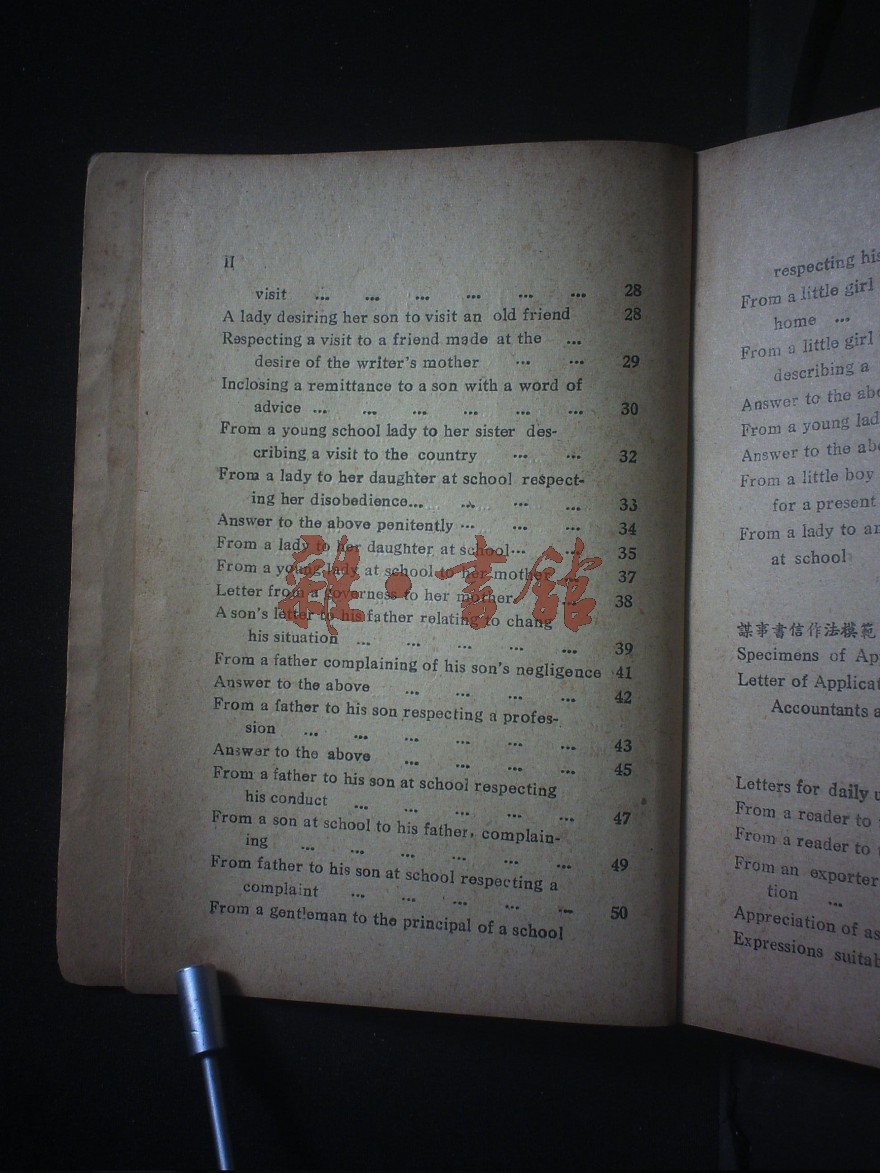 II
visit ... ... ... ... ... ... 28
A lady desiring her son to visit an old friend 28
Respecting a visit to a friend made at the ...
desire of the writer's mother ... ... 29
Inclosing a remittance to a son with a word of
advice ... ... ... ... ... ... 30
From a young school lady to her sister des-
cribing a visit to the country ... ... 32
From a lady to her daughter at school respect-
ing her disobedience... ... ... ... 33
Answer to the above penitently ... ... ... 34
From a lady to her daughter at school... ... 35
From a young lady at school to her mother ... 37
Letter from a governess to her mother. ... 38
A son's letter to his father relating to chang
his situation ... ... ... ... ... 39
From a father complaining of his son's negligence 41
Answer to the above ... ... ... ... 42
From a father to his son respecting a profes-
sion ... ... ... ... ... ... 43
Answer to the above ... ... ... ... 45
From a father to his son at school respecting
his conduct ... ... ... ... ... 47
From a son at school to his father, complain-
ing ... ... ... ... ... ... 49
From father to his son at school respecting a
complaint ... ... ... ... ... 50
From a gentleman to the principal of a school
respecting his
From a little girl
home ...
From a little girl
describing a
Answer to the abo
From a young lad
Answer to the abo
From a little boy
for a present
From a lady to an
at school
謀事書信作法模範
Specimens of Ap
Letter of Applicat
Accountants a
Letters for daily u
From a reader to
From a reader to
From an exporter
tion ...
Appreciation of as
Expressions suitab
雜·書館